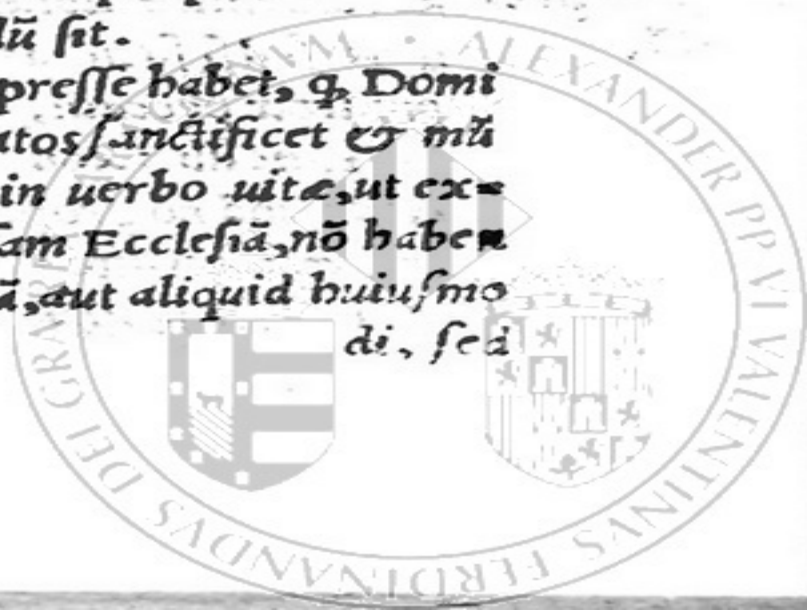 lũ ſit.
preſſe habet, ꝙ Domi
atos ſanctificet & mũ
in uerbo uitæ, ut ex=
ſam Eccleſiã, nõ haben
ã, aut aliquid huiuſmo
di, ſed
ALEXANDER PP VI VALENTINVS FERDINANDVS DEI GRA